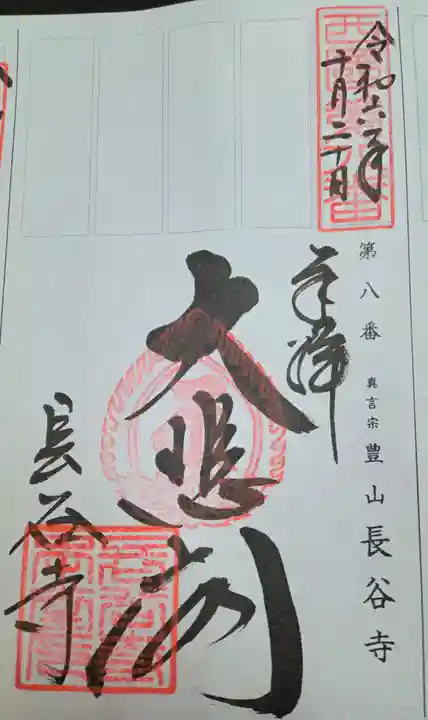 令和六年
十月二十日
奉拝
第八番 真言宗 豊山長谷寺
大悲閣
長谷寺